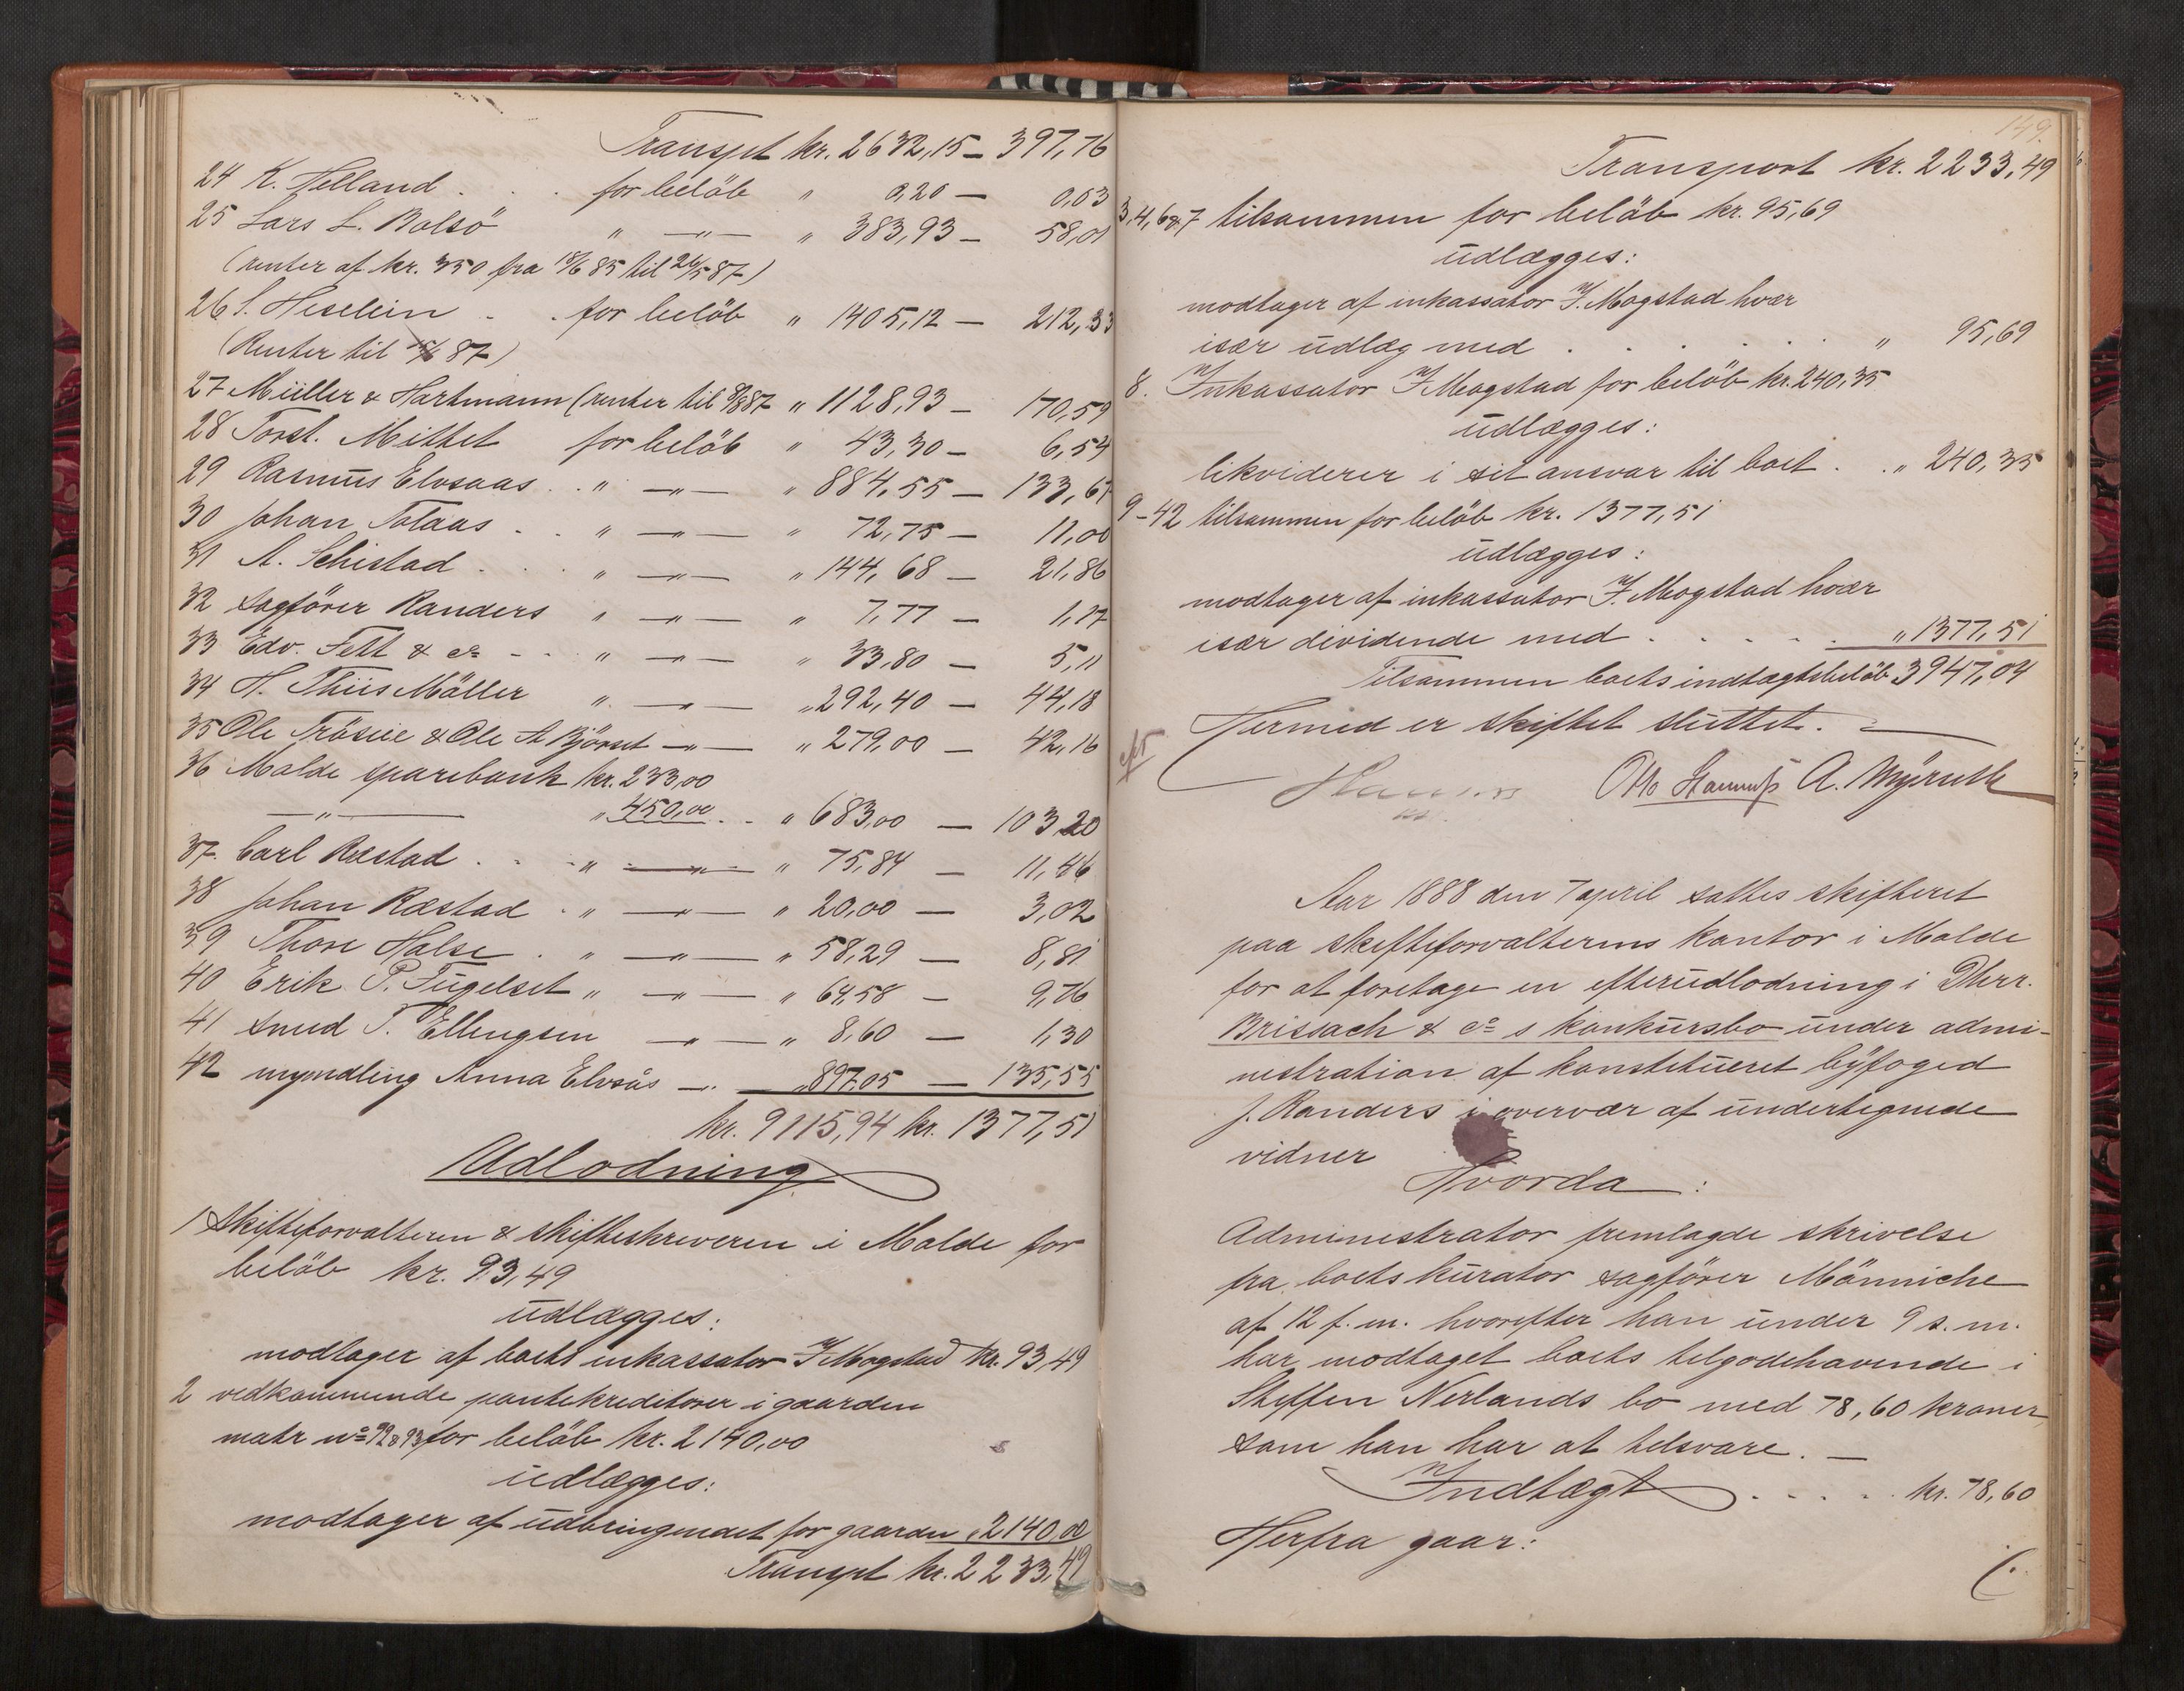 Transpt kr. 2632,15 – 397,76
24 K. Helland . . . for belöb " 0,20 – 0,03
25 Lars L. Bolsö " —"— " 383,93 – 58,01
(renter af kr. 350 fra 18/6 85 til 24/5 87)
26 S. Heselein . . for belöb " 1405,12 – 212,33
(Renter til 87)
27 Müller & Hartmann (renter til 87 " 1128,93 – 170,59
28 Torst. Mittet for belöb " 43,30 – 6,54
29 Rasmus Elvsaas . . " —"— " 884,55 – 133,67
30 Johan Tolaas . . " —"— " 72,75 – 11,00
31 A. Schistad . . . " —"— " 144,68 – 21,86
32 Sagförer Randers " —"— " 7,77 – 1,17
33 Edv. Fett & co - . . " —"— " 33,80 – 5,11
34 H. Thiis Möller " —"— " 292,40 – 44,18
35 Ole Tröseie & Ole A Björset —"— " 279,00 – 42,16
36 Molde sparebank kr. 233,00
—"— " 450,00 . . " 683,00 – 103,20
37. Carl Ræstad . . . " —"— " 75,84 – 11,46
38 Johan Ræstad . " —"— " 20,00 – 3,02
39 Thore Halse . " —"— " 58,29 – 8,81
40 Erik P. Fugelset " —"— " 64,58 – 9,76
41 Smed T. Ellingsen —"— " 8,60 – 1,30
42 myndling Anna Elvsås —"— " 897,05 – 135,55
kr. 9115,94 kr. 1377,51
Udlodning
1 Skifteforvalteren & skifteskriveren i Molde for
belöb kr. 93,49
udlægges:
modtager af boets inkassator J. Mogstad kr. 93,49
2 vedkommende pantekreditorer i gaarden
matr no 92 & 93 for belöb kr. 2140,00
udlægges:
modtager af udbringendet for gaarden " 2140,00
Transpt kr. 2233,49
149.
Transport kr. 2233,49
3,4,6 & 7 tilsammen for belöb kr. 95,69
udlægges:
modtager af inkassator J. Mogstad hver
især udlæg med . . . . . . " 95,69
8. Inkassator J. Mogstad for belöb kr. 240,35
udlægges:
likviderer i sit ansvar til boet . . " 240,35
9–42 tilsammen for belöb kr. 1377,51
udlægges:
modtager af inkassator J. Mogstad hver
især dividende med . . . . . " 1377,51
Tilsammen boets indtægtsbelöb 3947,04
Hermed er skiftet sluttet.
Otto A. Myruth
Aar 1888 den 7 april sattes skifteret
paa skifteforvalterens kontor i Molde
for at foretage en efterudlodning i Dhrr.
Brisach & co s konkursbo under admi-
nistration af konstitueret byfoged
J. Randers i overvær af undertegnede
vidner
Hvorda:
Administrator fremlagde skrivelse
fra boets kurator sagförer Mönniche
af 12 f. m. hvorefter han under 9 s. m.
har modtaget boets tilgodehavende i
Steffen Nerlands bo med 78,60 kroner
som han har at tilsvare. —
Indtægt . . . . . kr. 78,60
Herfra gaar: